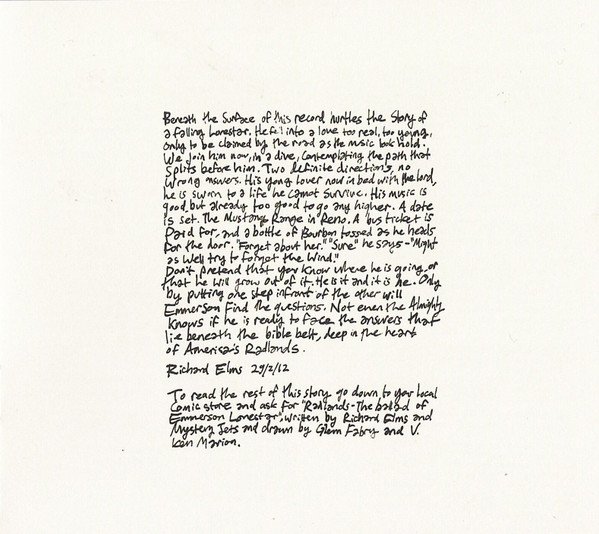 Beneath the surface of this record hurtles the story of
a falling Lonestar. He fell into a love too real, too young,
only to be claimed by the road as the music took hold.
We join him now, in a dive, contemplating the path that
splits before him. Two definite directions, no
wrong answers. His young lover now in bed with the lord,
he is sworn to a life he cannot survive. His music is
good, but already too good to go any higher. A date
is set. The Mustang Range in Reno. A bus ticket is
paid for, and a bottle of Bourbon tossed as he heads
for the door. "Forget about her." "Sure" he says - "Might
as well try to forget the wind."
Don't pretend that you know where he is going, or
that he will grow out of it. He is it and it is he. Only
by putting one step infront of the other will
Emmerson find the questions. Not even the Almighty
knows if he is ready to face the answers that
lie beneath the bible belt, deep in the heart
of America's Radlands.
Richard Elms 29/2/12
To read the rest of this story go down to your local
comic store and ask for "Radlands - The ballad of
Emmerson Lonestar", written by Richard Elms and
Mystery Jets and drawn by Glenn Fabry and V.
Ken Marion.